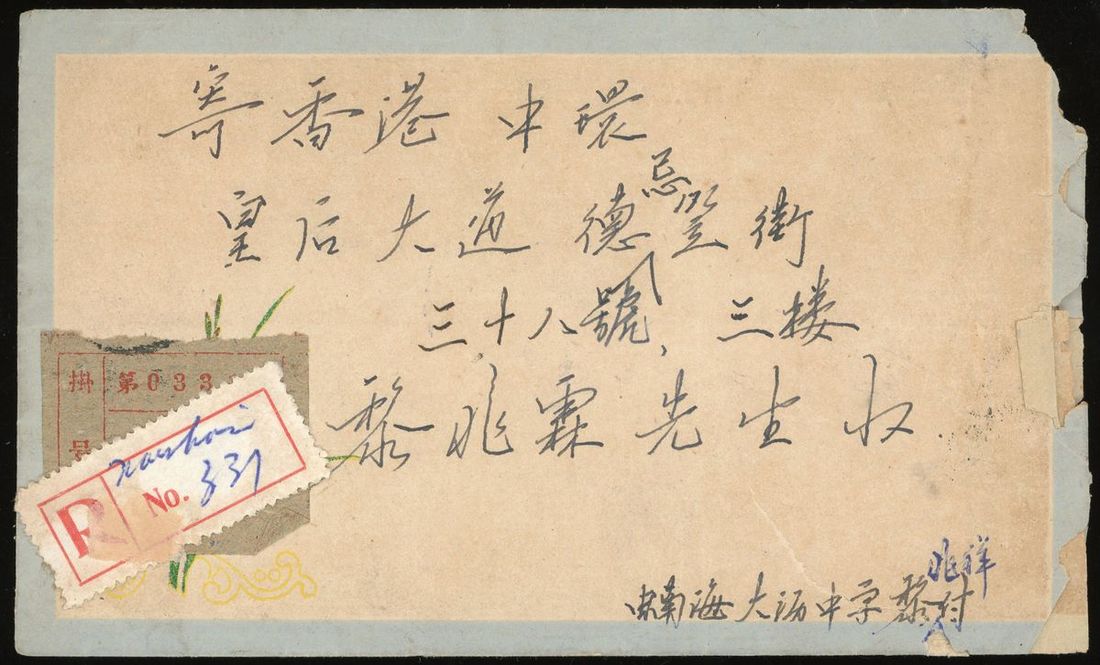 寄香港 中環
皇后大道 德忌笠街
三十八號，三楼
黎兆霖先生收
掛号
第033
Nanhai
R No. 331
由南海大沥中学黎兆祥付